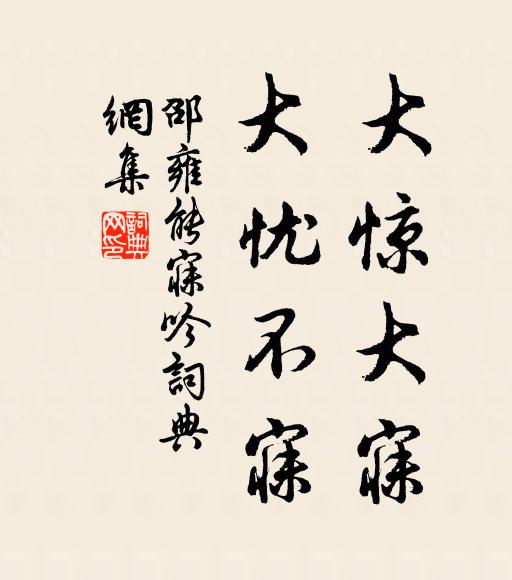 大惊大寐
大忧不寐
邵雍能寐吟詞典
網集
詞典
网印